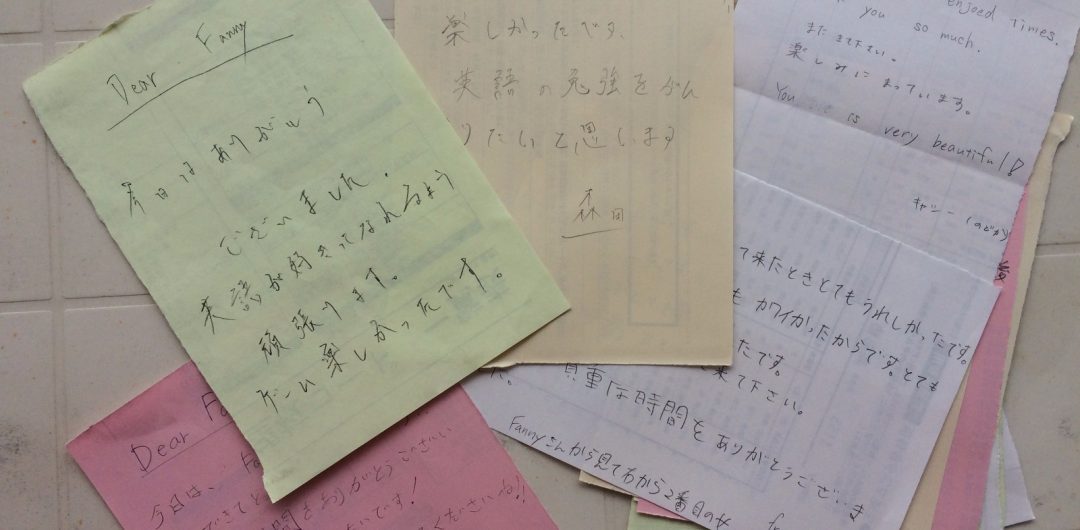 Dear Fanny
今日はありがとう
ございました。
英語が好きってなれるよう
頑張ります。
ゲーム楽しかったです。
楽しかったです。
英語の勉強をがん
りたいと思います
森田
enjoed times.
you so much.
また きて下さい。
楽しみに まっています。
You is very beautiful!!
キャシー (のどか)
て来たときとてもうれしかったです。
も カワイかったからです。とても
たです。
来て下さい。
貴重な時間を ありがとうございま
た。
Fannyさんから見て右から2番目の
Dear Fa
今日は、 Fa
できてと
時間をありがとうござい
いです!
くださいね!!